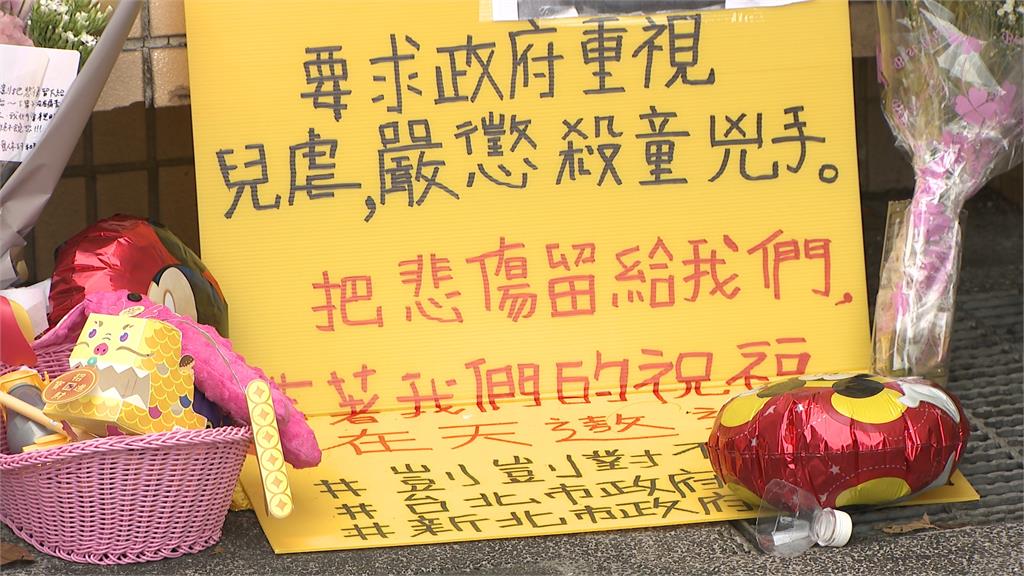 要求政府重視
兒虐,嚴懲殺童兇手。
把悲傷留給我們,
著我們的祝福
在天遨
# 剴剴對
# 台北市政府
# 新北市政府